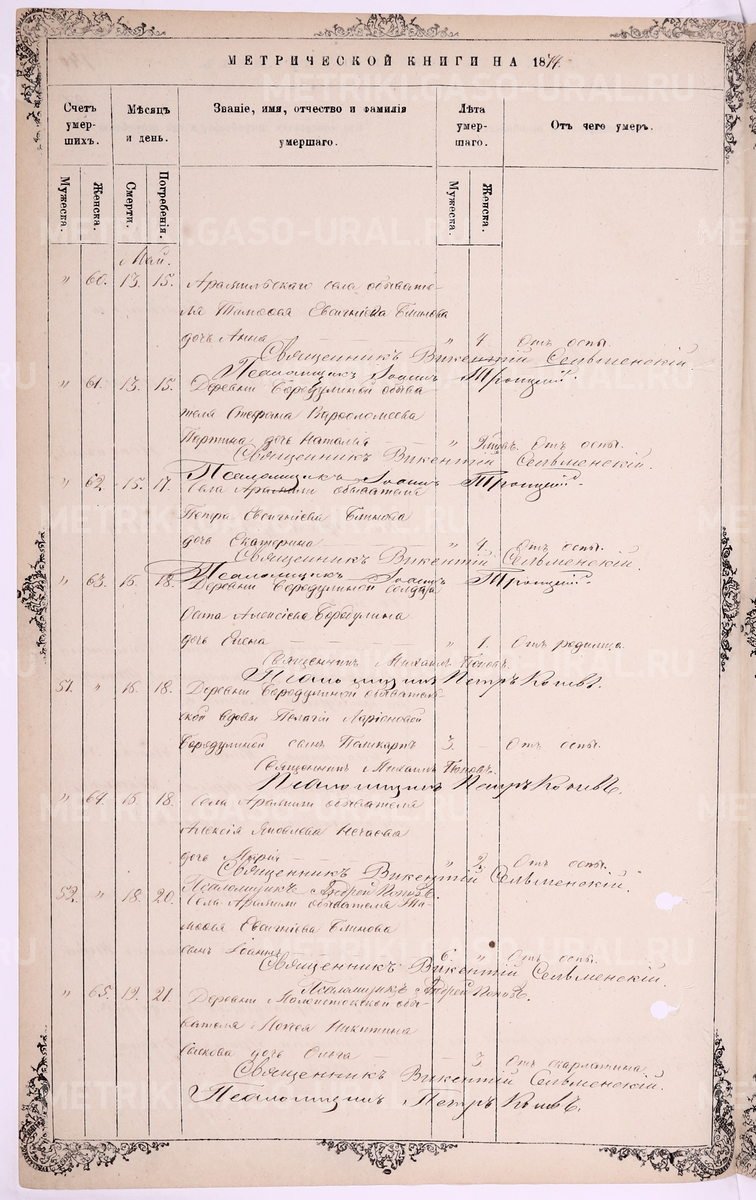 МЕТРИЧЕСКОЙ КНИГИ НА 1874.
Счетъ умер-шихъ. Мѣсяцъ и день. Званіе, имя, отчество и фамилія умершаго. Лѣта умер-шаго. Отъ чего умеръ.
Мужеска. Женска. Смерти. Погребенія. Мужеска. Женска.
Май.
" 60. 13. 15. Арамильскаго села обывате-
ля Тимоѳея Евсигніева Блинова
дочь Анна " 4 Отъ оспы.
Священникъ Викентій Сельменскій.
Псаломщикъ Іоаннъ Троицкій.
" 61. 13. 15. Деревни Бородулиной обыва-
теля Стефана Варѳоломеева
дочь Наталія " Отъ оспы.
Священникъ Викентій Сельменскій.
Псаломщикъ Іоаннъ Троицкій.
" 62. 15. 17. Села Арамили обывателя
Петра Евсигніева Блинова
дочь Екатерина " 4 Отъ оспы.
Священникъ Викентій Сельменскій.
Псаломщикъ Іоаннъ Троицкій.
" 63. 16. 18. Деревни Бородулиной солдата
Осипа Алексіева Бородулина
дочь Елена " 1. Отъ родимца.
Священникъ Михаилъ Поповъ.
Псаломщикъ Петръ
51. " 16. 18. Деревни Бородулиной обыватель-
ской вдовы Пелагіи Ларіоновой
Бородулиной сынъ Поликарпъ 3. Отъ оспы.
Священникъ Михаилъ Поповъ.
Псаломщикъ Петръ
" 64. 16. 18. Села Арамили обывателя
Алексія Яковлева Нечаева
дочь Марія " 2. Отъ оспы.
Священникъ Викентій Сельменскій.
Псаломщикъ Андрей Поповъ.
52. " 18. 20. Села Арамили обывателя Ти-
моѳея Евсигніева Блинова
сынъ Іоаннъ 6. " Отъ оспы.
Священникъ Викентій Сельменскій.
Псаломщикъ Андрей Поповъ.
" 65. 19. 21. Деревни обы-
вателя Никитина
дочь Ольга 3 Отъ скарлатина.
Священникъ Викентій Сельменскій.
Псаломщикъ Петръ
METRIKI.CASO-URAL.RU